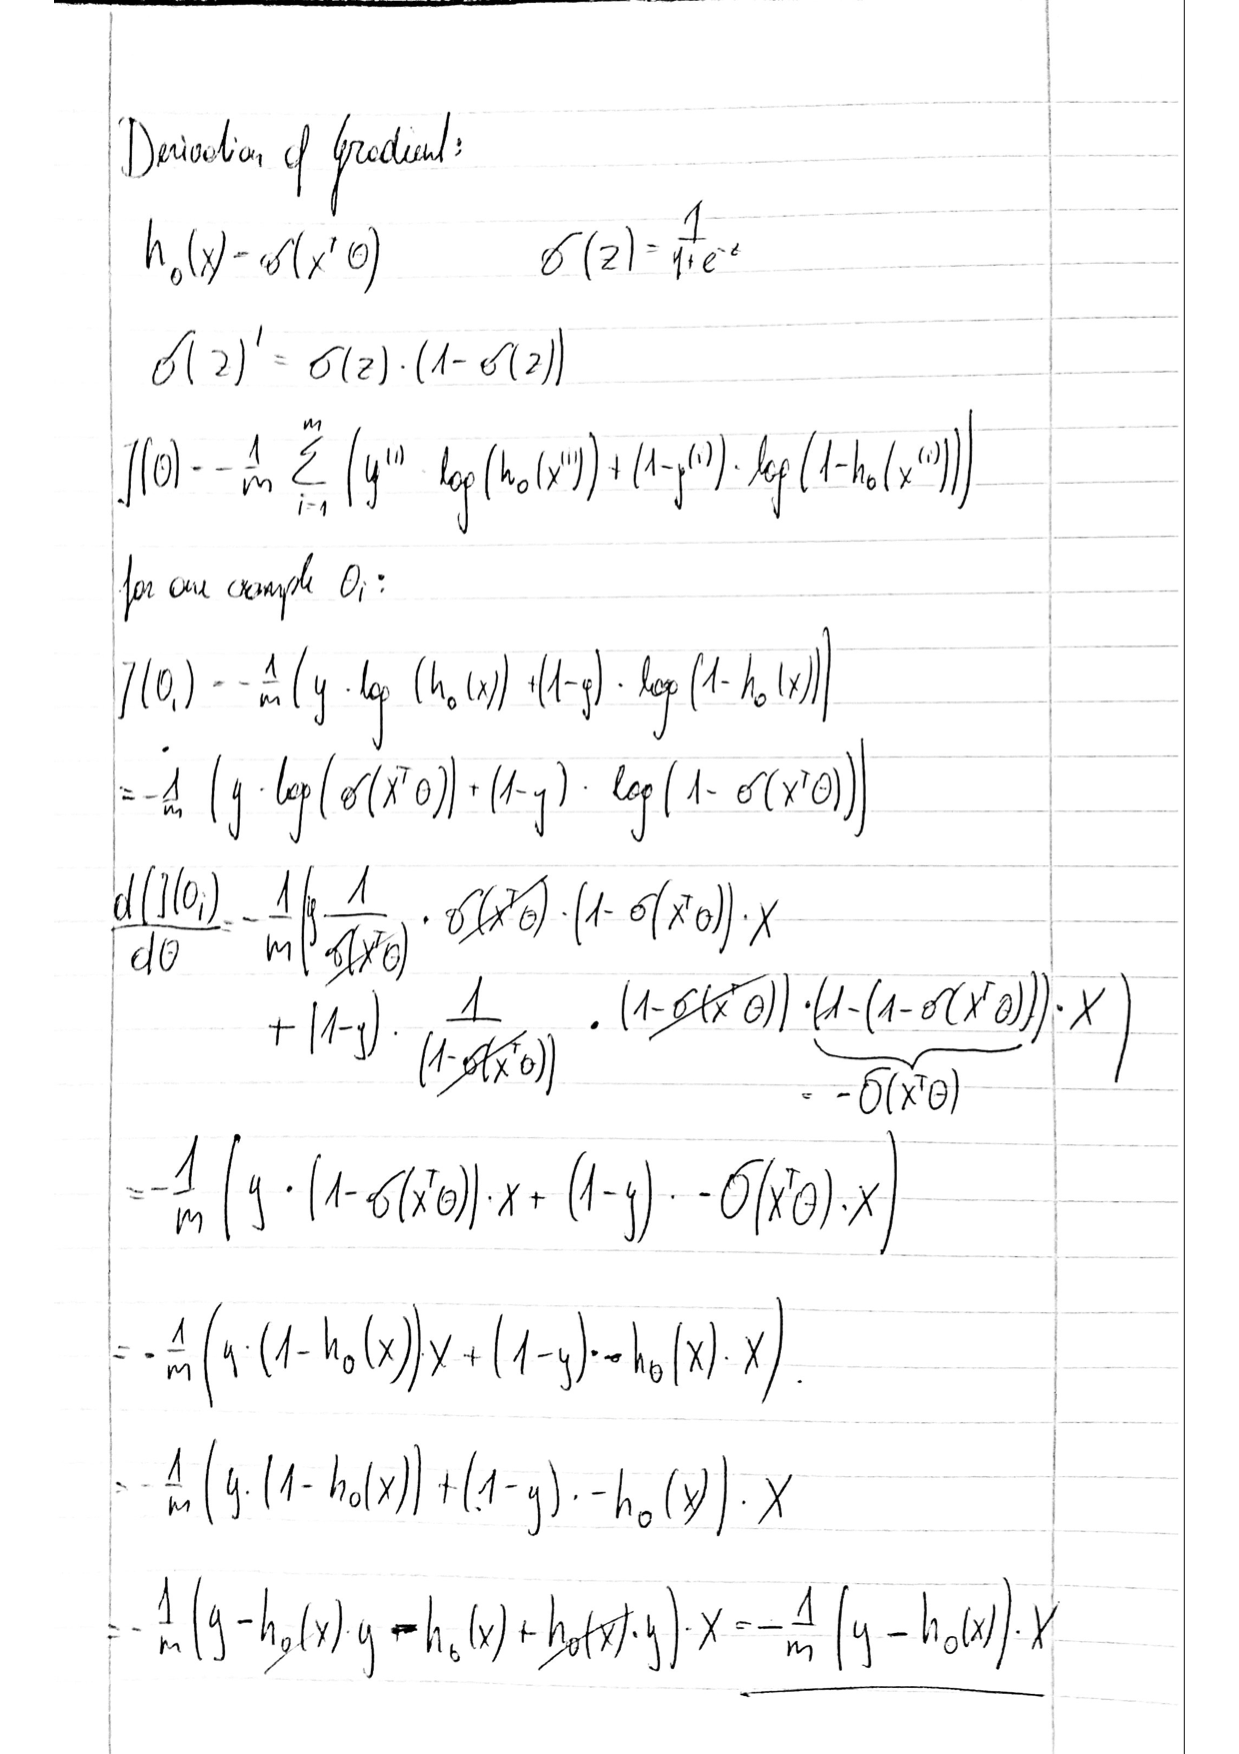 Derivation of Gradient:
h_θ(x) = σ(x^T θ)    σ(z) = 1/(1+e^-z)
σ(z)' = σ(z) · (1 - σ(z))
J(θ) = -1/m Σ_{i=1}^{m} (y^(i) log(h_θ(x^(i))) + (1-y^(i)) · log(1-h_θ(x^(i))))
for one example θ_i:
J(θ_i) = -1/m (y · log(h_θ(x)) + (1-y) · log(1-h_θ(x)))
= -1/m (y · log(σ(x^T θ)) + (1-y) · log(1-σ(x^T θ)))
d(J(θ_i)/dθ = -1/m (y 1/σ(x^T θ) · σ(x^T θ) · (1-σ(x^T θ)) · x
+ (1-y) · 1/(1-σ(x^T θ)) · (1-σ(x^T θ)) · (1-(1-σ(x^T θ))) · x)
= -σ(x^T θ)
= -1/m (y · (1-σ(x^T θ)) · x + (1-y) · -σ(x^T θ) · x)
= -1/m (y · (1-h_θ(x)) x + (1-y) · -h_θ(x) · x).
= -1/m (y · (1-h_θ(x)) + (1-y) · -h_θ(x)) · x
= -1/m (y - h_θ(x) · y - h_θ(x) + h_θ(x) · y) · x = -1/m (y - h_θ(x)) · x